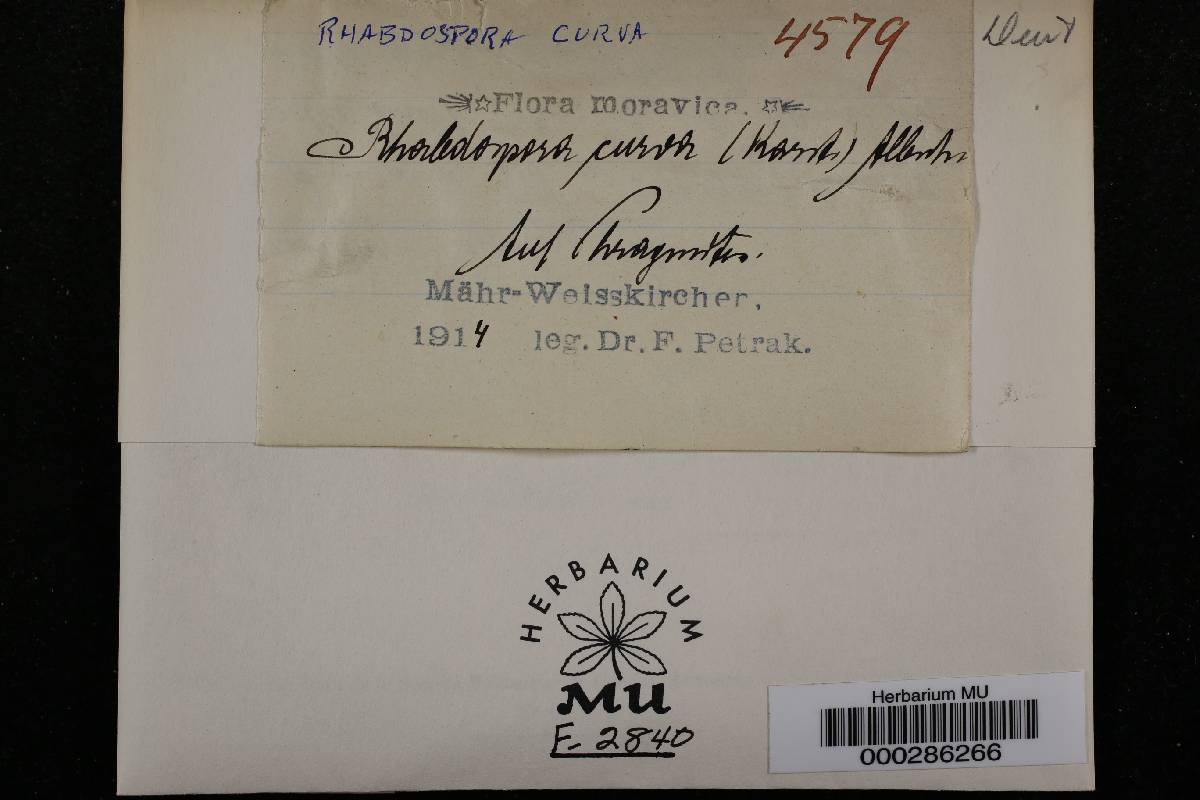 RHABDOSPORA CURVA 4579
Flora moravica.
Rhabdospora curva (Karst.) Allesch.
Auf Phragmites.
Mähr-Weisskircher,
1914 leg. Dr. F. Petrak.
HERBARIUM
MU
F. 2840
Herbarium MU
000286266